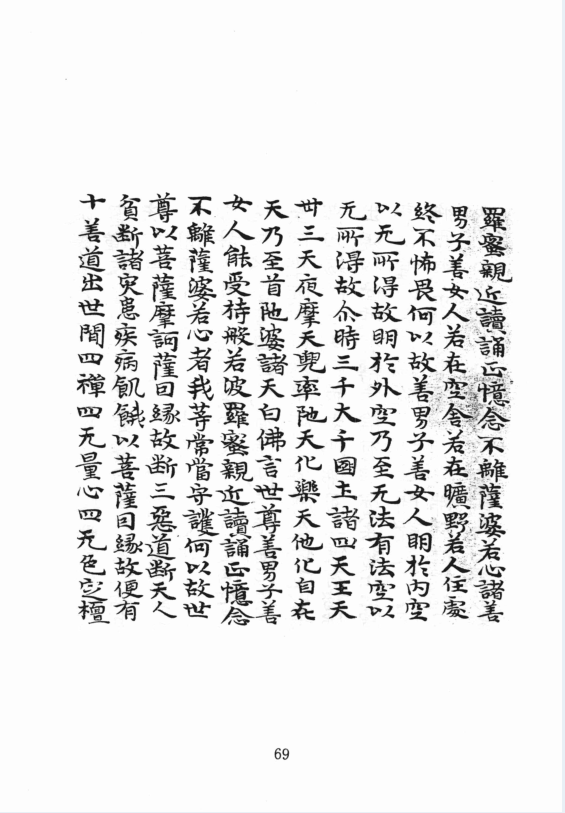 羅蜜親近讀誦正憶念不離薩婆若心諸善
男子善女人若在空舍若在曠野若人住處
終不怖畏何以故善男子善女人明於內空
以无所淂故明於外空乃至无法有法空以
无所淂故尒時三千大千國土諸四天王天
丗三天夜摩天兜率陁天化樂天他化自在
天乃至首陁婆諸天白佛言世尊善男子善
女人能受持般若波羅蜜親近讀誦正憶念
不離薩婆若心者我等常當守護何以故世
尊以菩薩摩訶薩因緣故断三惡道断天人
貧断諸灾患疾病飢餓以菩薩因緣故便有
十善道出世間四禪四无量心四无色定檀
69